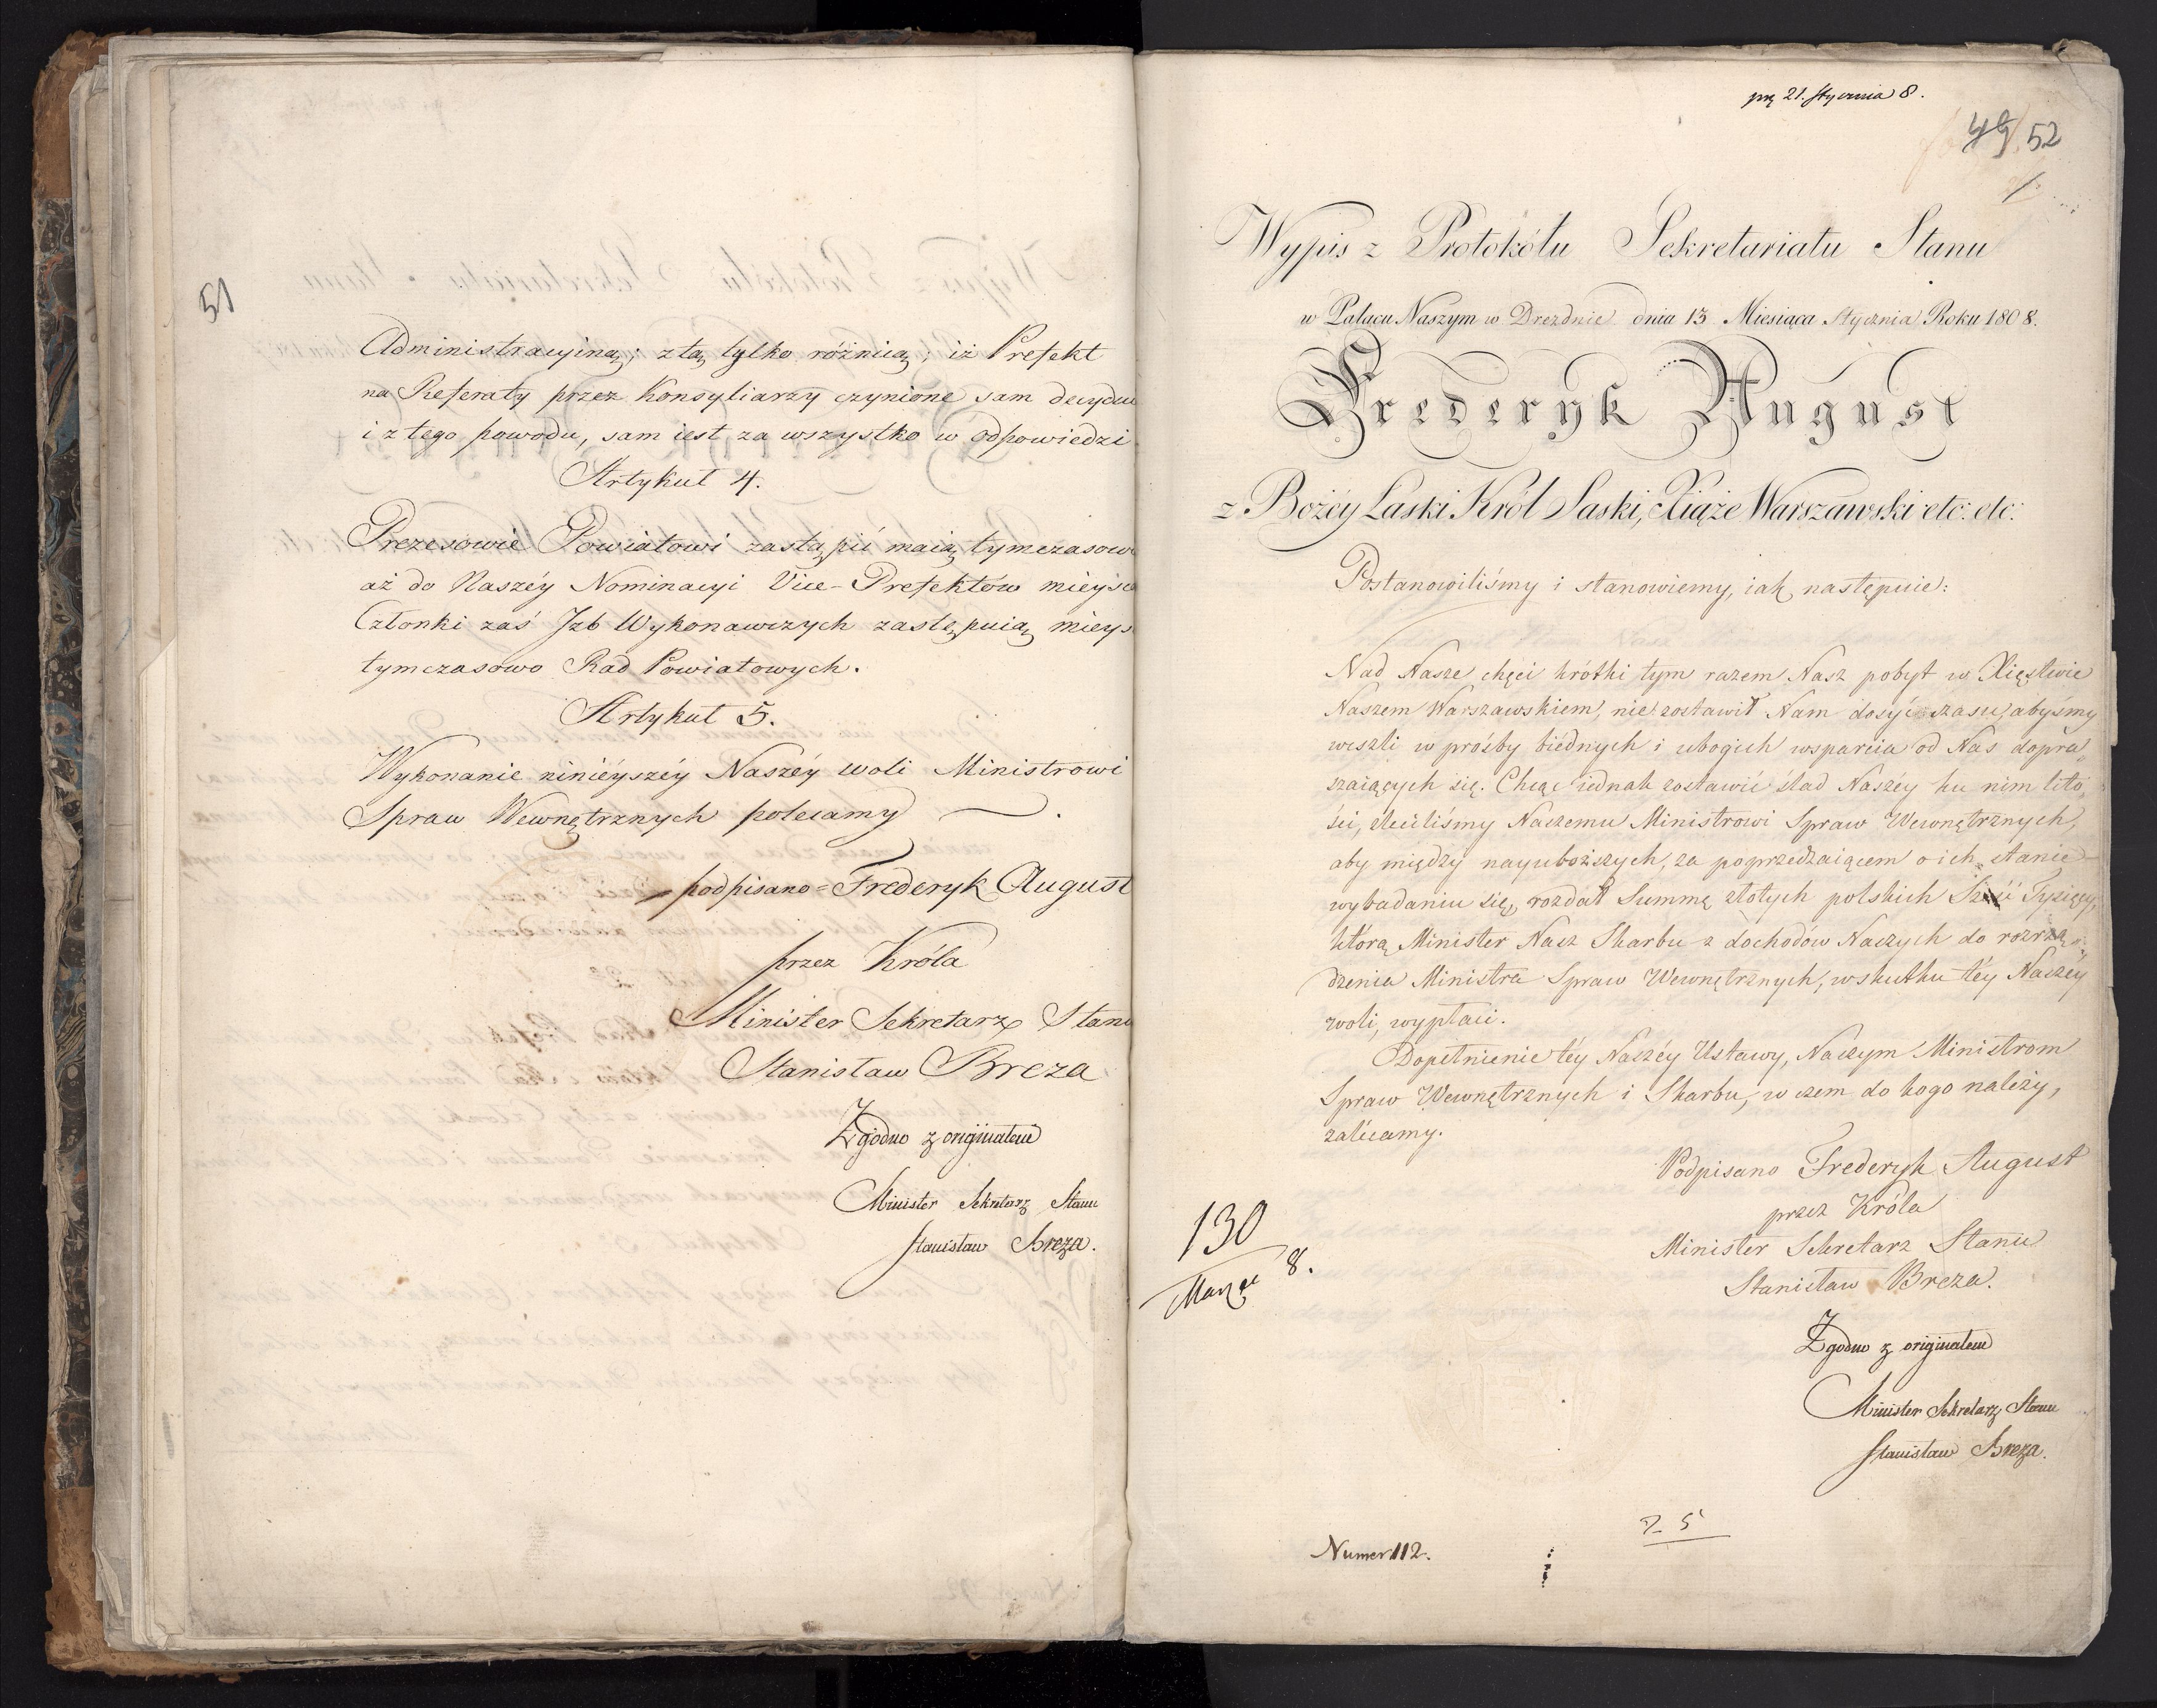 51
Administracyiną; z tą tylko różnicą; iż Prefekt
na Referaty przez Konsyliarzy czynione sam decydu
i z tego powodu, sam iest za wszystko w odpowiedzi
Artykuł 4.
Prezesowie Powiatowi zastąpić maią tymczasow
aż do Naszéy Nominacyi Vice-Prefektów mieysc
Członki zaś Izb Wykonawczych zastępuią mieys
tymczasowo Rad Powiatowych.
Artykuł 5.
Wykonanie ninieyszéy Naszéy woli Ministrowi
Spraw Wewnętrznych polecamy
podpisano = Frederyk August
przez Króla
Minister Sekretarz Stanu
Stanisław Breza
Zgodno z originałem
Minister Sekretarz Stanu
Stanisław Breza.
21. Stycznia 8.
49 52
Wypis z Protokółu Sekretariatu Stanu
w Pałacu Naszym w Dreźdnie dnia 13 Miesiąca Stycznia Roku 1808.
Frederyk August
z Bożéy Łaski Król Saski, Xiąże Warszawski etc: etc:
Postanowiliśmy i stanowiemy, iak następuie:
Nad Nasze chęci krótki tym razem Nasz pobyt w Xięstwie
Naszem Warszawskiem, nie zostawił Nam dosyć czasu, abyśmy
weszli w prośby biédnych i ubogich wsparcia od Nas dopra„
szaiących się. Chcąc iednak zostawić ślad Naszéy ku nim lito„
ści, zleciliśmy Naszemu Ministrowi Spraw Wewnętrznych,
aby między nayuboższych, za poprzedzaiącem o ich stanie
wybadaniu się, rozdał Summę złotych polskich Sześć Tysięcy,
którą Minister Nasz Skarbu z dochodów Naszych do rozrzą„
dzenia Ministra Spraw Wewnętrznych, w skutku téy Naszéy
woli, wypłaci.
Dopełnienie téy Naszéy Ustawy, Naszym Ministrom
Spraw Wewnętrznych i Skarbu, w czem do kogo należy,
zalécamy.
Podpisano Frederyk August
przez Króla
Minister Sekretarz Stanu
Stanisław Breza.
130
Marzec 8.
Zgodno z originałem
Minister Sekretarz Stanu
Stanisław Breza.
Numer 112.